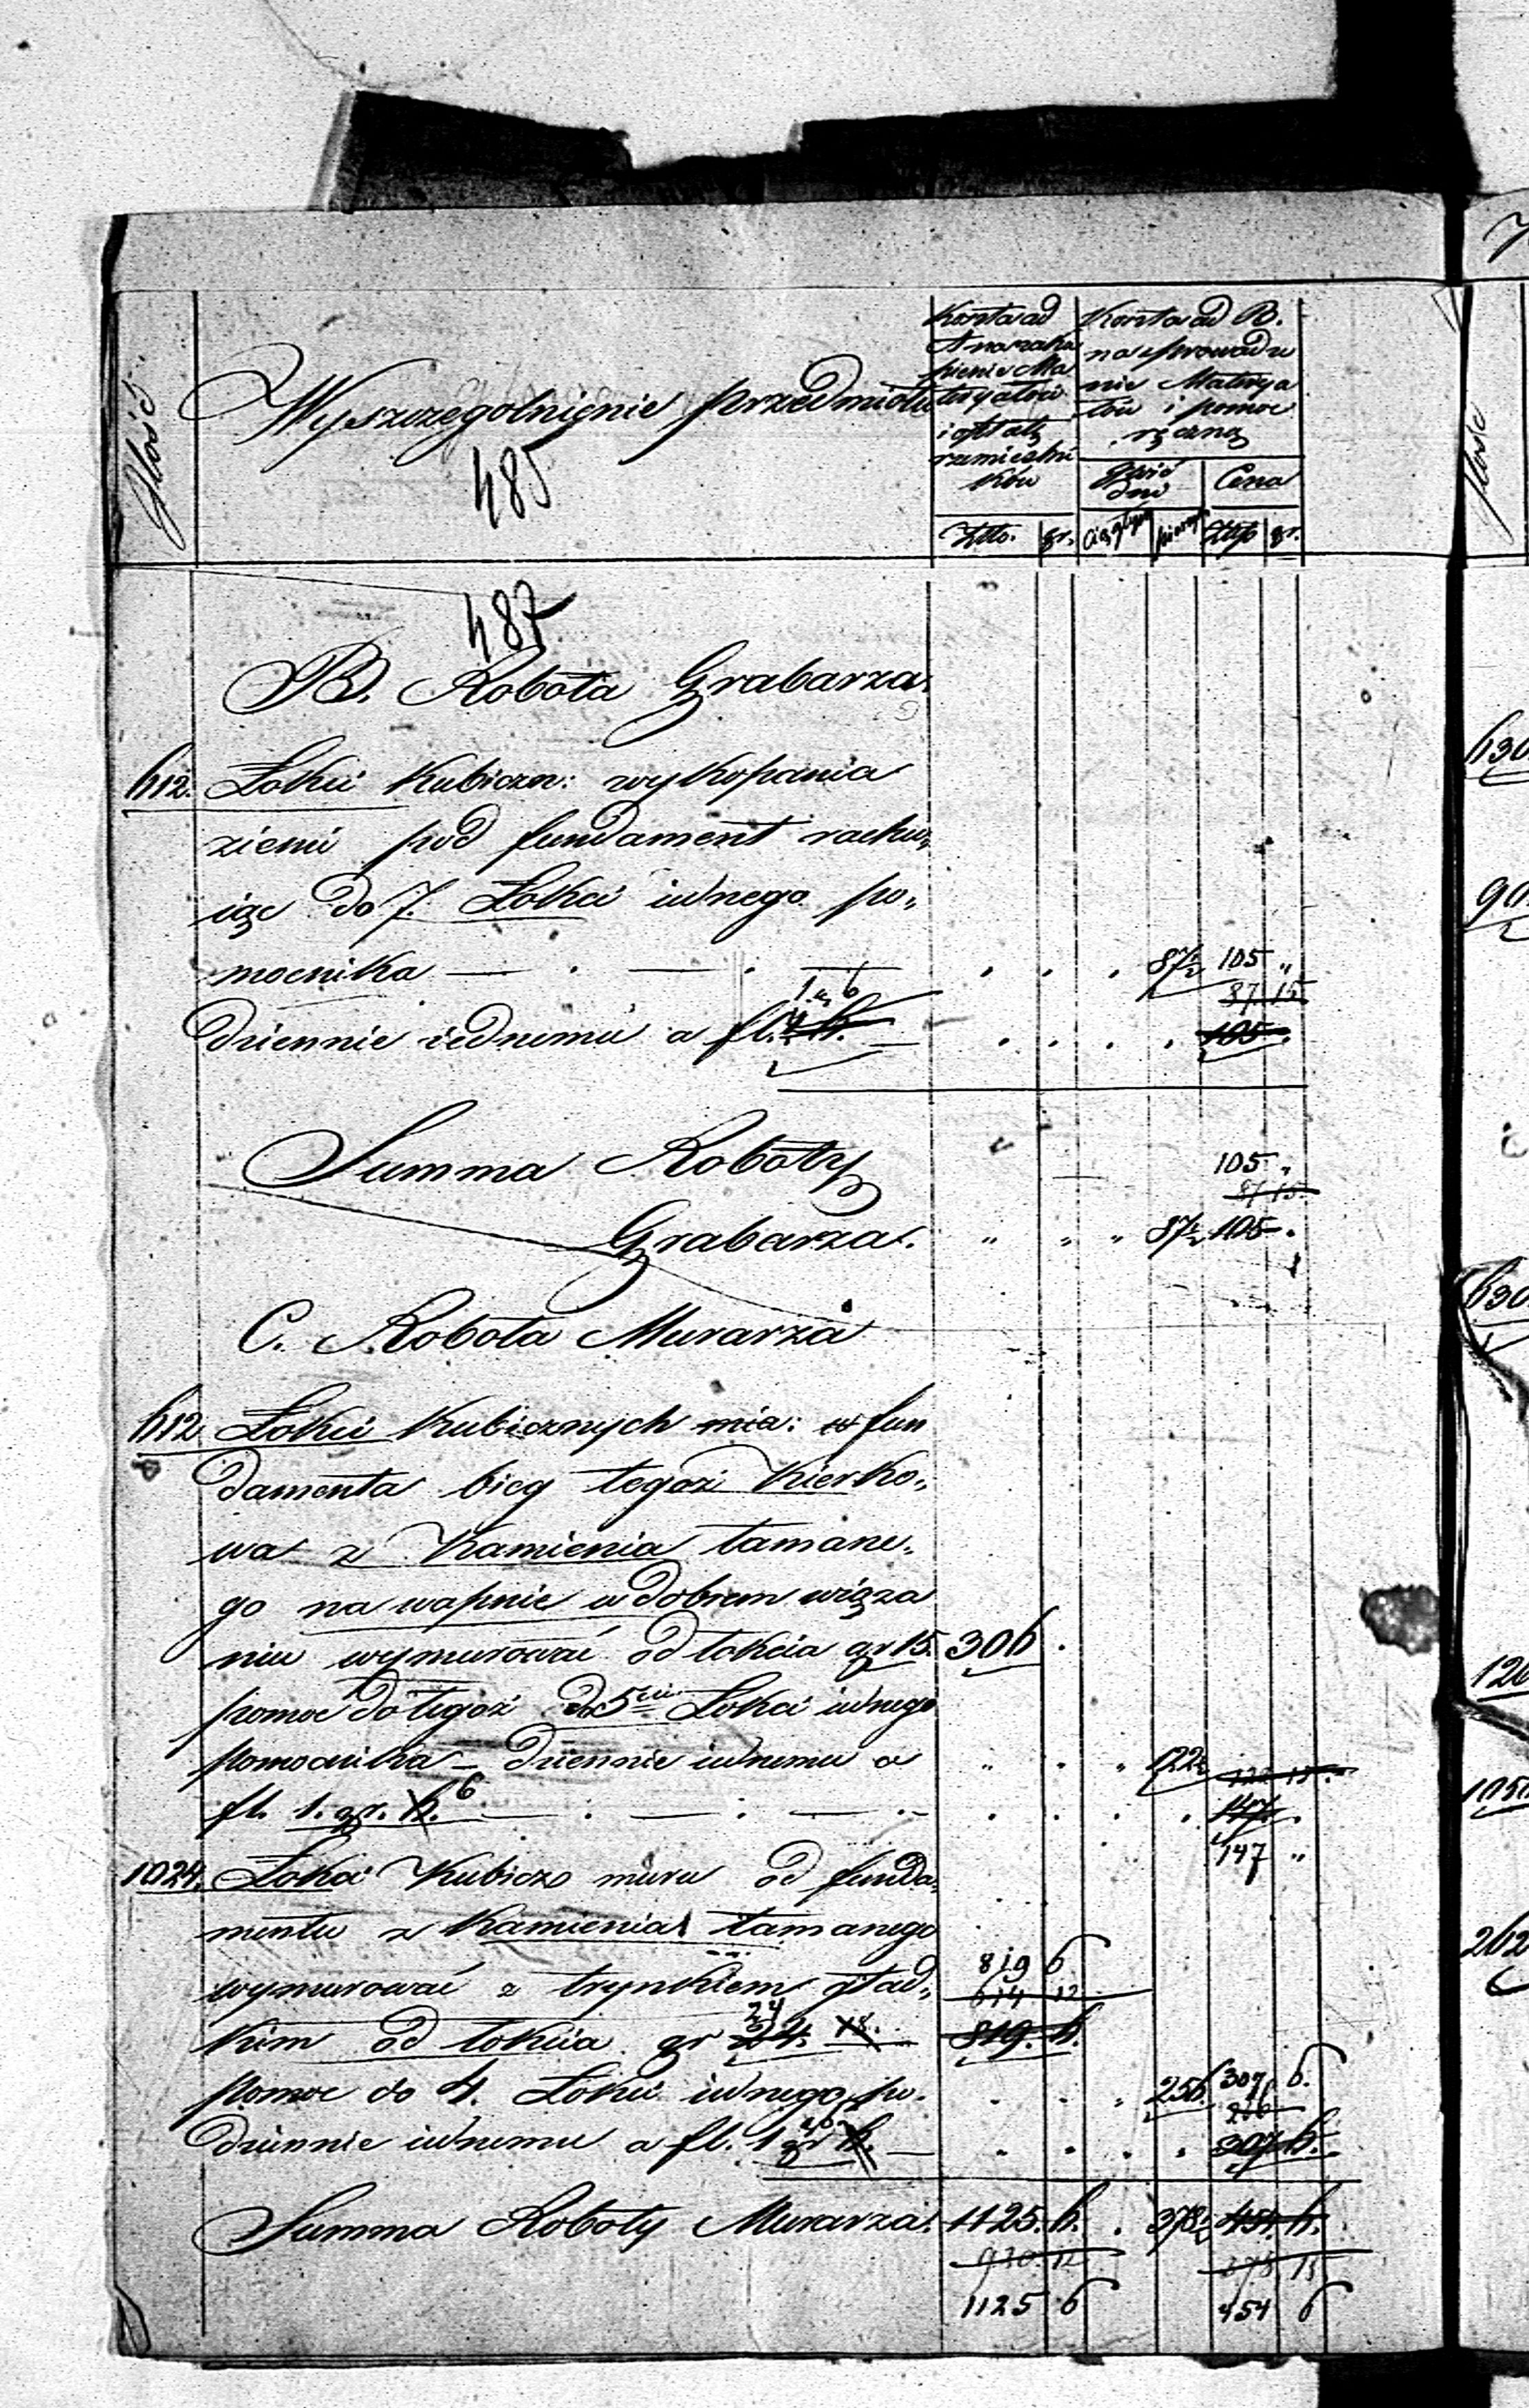 Ilość
Wyszczegolnienie przedmiotu
485
Koszta ad
A na zaku
pienie Ma
teryałów
i opłatę
rzemieślni
ków
Koszta ad B.
na sprowadze
nie Materya
łów i pomoc
ręczną
Ilość
dni
Cena
Złto. gr. ciągłych pieszych Złtp gr.
487
B. Robota Grabarza.
612. Łokci Kubiczn: wykopania
ziemi pod fundament rachu„
iąc do 7. Łokci iednego po„
mocnika — . — . — 87½ 105 „
1 „ 6 87 15
dziennie iednemu a fl. — 105 .
Summa Roboty 105 „
87 15
Grabarza. „ „ „ 87½ 105 .
C. Robota Murarza
612 Łokci Kubicznych mia: w fun
damenta bieg tegoż Kierko„
wa z Kamienia łamane„
go na wapnie w dobrem wiąza
niu wymurować od łokcia gr 15. 306 .
pomoc do tegoż do 5ciu Łokci iednego
pomocnika — dziennie iednemu a „ . „ 122½ 122 15
fl. 1. gr. 6. 6 — . — . — 147 .
147 „
1024. Łokci Kubicz muru od funda„
mentu z Kamienia łamanego
819 6
wymurować z trynkiem gład„ 614 12
24
kim od łokcia gr 24. 18. 819. 6.
pomoc do 4. Łokci iednego po. . . „ 256. 307 6.
256
dziennie iednemu a fl. 1 gr 6. — 307 6.
Summa Roboty Murarza. 1125. 6. . 378½ 454. 6.
920 12 378 15
1125 6 454 6
Ilość
630
90
630
120
1050
262